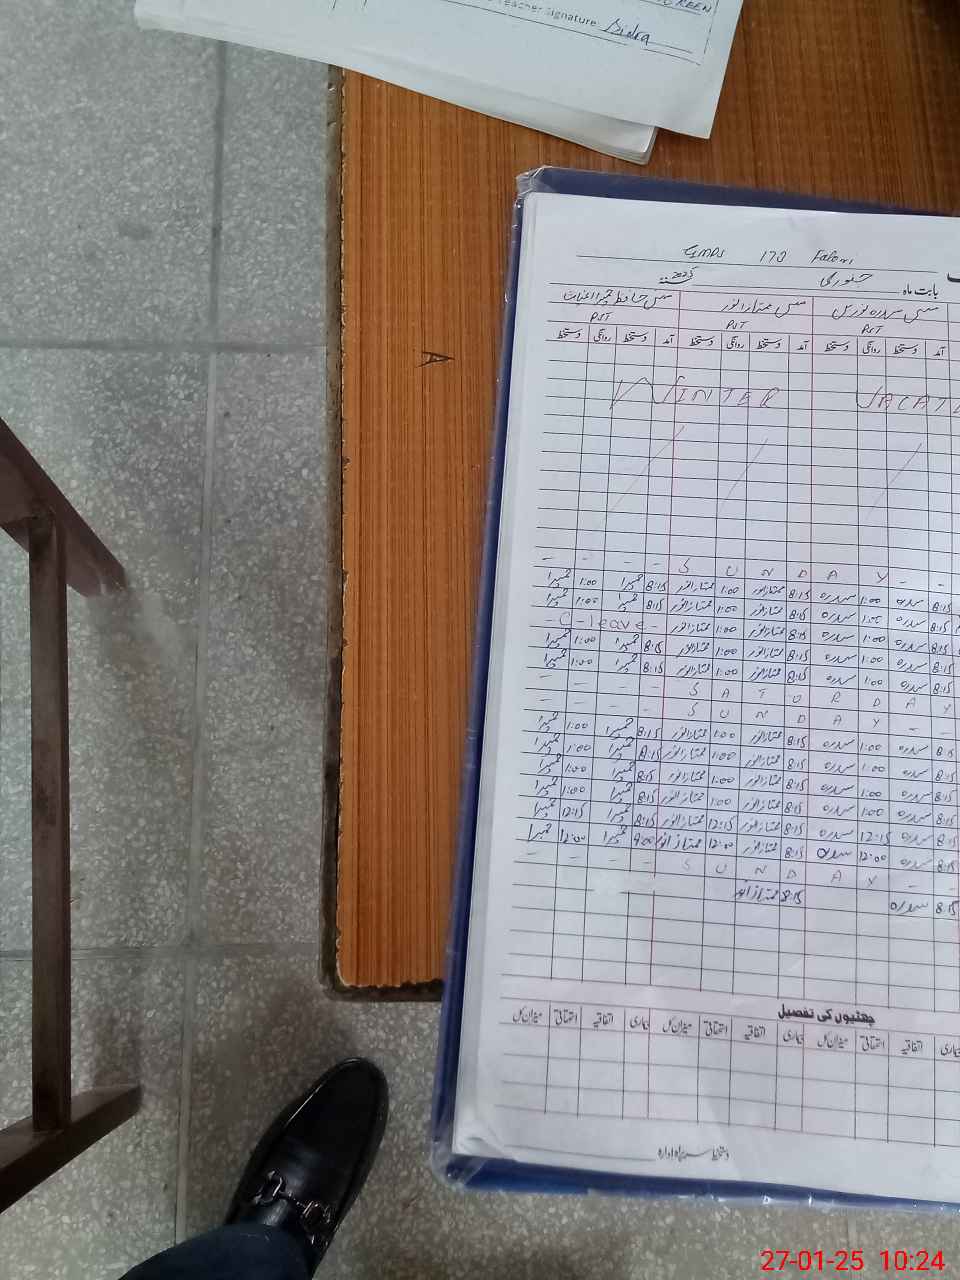 Teacher Signature: Sidra
GMPS 170
بابت ماہ جنوری 2025
مس سدرہ نورین مس ممتاز انور مس حافظہ حمیرا
PST PST PST
آمد دستخط روانگی دستخط آمد دستخط روانگی دستخط آمد دستخط روانگی دستخط
WINTER VACATI
A
- - S U N D A Y - - - -
8:15 سدرہ 1:00 سدرہ 8:15 ممتاز انور 1:00 ممتاز انور 8:15 حمیرا 1:00 حمیرا
8:15 سدرہ 1:00 سدرہ 8:15 ممتاز انور 1:00 ممتاز انور 8:15 حمیرا 1:00 حمیرا
8:15 سدرہ 1:00 سدرہ 8:15 ممتاز انور 1:00 ممتاز انور - C - leave -
8:15 سدرہ 1:00 سدرہ 8:15 ممتاز انور 1:00 ممتاز انور 8:15 حمیرا 1:00 حمیرا
8:15 سدرہ 1:00 سدرہ 8:15 ممتاز انور 1:00 ممتاز انور 8:15 حمیرا 1:00 حمیرا
- - - - S A T U R D A Y
- - - - S U N D A Y - -
8:15 سدرہ 1:00 سدرہ 8:15 ممتاز انور 1:00 ممتاز انور 8:15 حمیرا 1:00 حمیرا
8:15 سدرہ 1:00 سدرہ 8:15 ممتاز انور 1:00 ممتاز انور 8:15 حمیرا 1:00 حمیرا
8:15 سدرہ 1:00 سدرہ 8:15 ممتاز انور 1:00 ممتاز انور 8:15 حمیرا 1:00 حمیرا
8:15 سدرہ 1:00 سدرہ 8:15 ممتاز انور 1:00 ممتاز انور 8:15 حمیرا 1:00 حمیرا
8:15 سدرہ 12:15 سدرہ 8:15 ممتاز انور 12:15 ممتاز انور 8:15 حمیرا 12:15 حمیرا
8:15 سدرہ 12:00 سدرہ 8:15 ممتاز انور 12:00 ممتاز انور 9:00 حمیرا 12:00 حمیرا
- - - - S U N D A Y - -
8:15 سدرہ 8:15 ممتاز انور
چھٹیوں کی تفصیل
بیماری اتفاقیہ استحقاقی میزان کل بیماری اتفاقیہ استحقاقی میزان کل بیماری اتفاقیہ استحقاقی میزان کل
دستخط سربراہ ادارہ
27-01-25 10:24